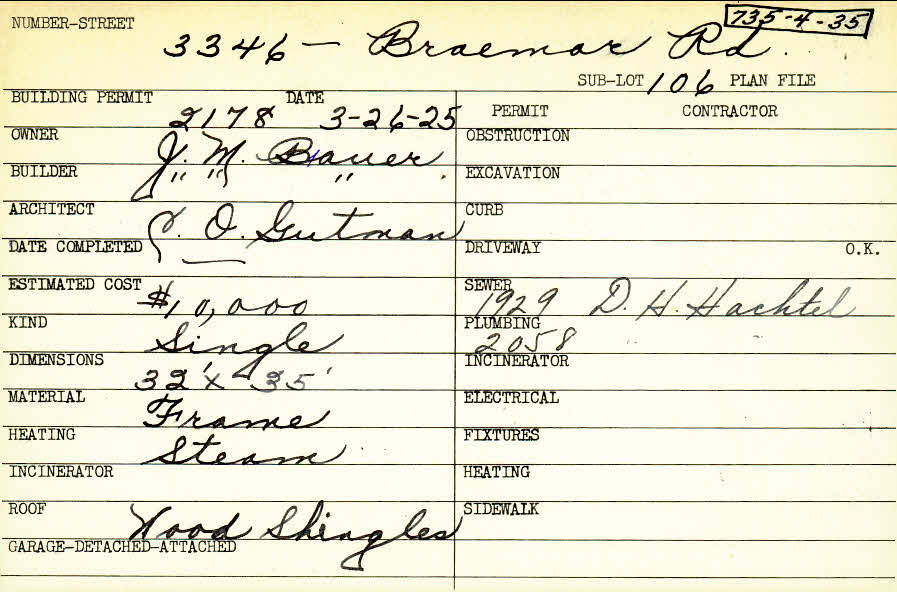 735-4-35
NUMBER-STREET
3346 - Braemar Rd.
SUB-LOT 106 PLAN FILE
BUILDING PERMIT DATE
2178 3-26-25
PERMIT CONTRACTOR
OWNER
J. M. Bauer
OBSTRUCTION
BUILDER
" " "
EXCAVATION
ARCHITECT
O. Gutman
CURB
DATE COMPLETED
—
DRIVEWAY O.K.
ESTIMATED COST
$10,000
SEWER
1929 D. H. Hachtel
KIND
Single
PLUMBING
2058 " " "
DIMENSIONS
32' x 35'
INCINERATOR
MATERIAL
Frame
ELECTRICAL
HEATING
Steam
FIXTURES
INCINERATOR
HEATING
ROOF
Wood Shingles
SIDEWALK
GARAGE-DETACHED-ATTACHED